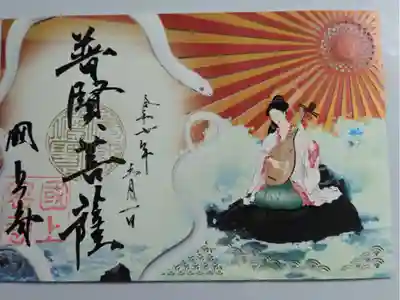 令和七年
六月一日
普賢菩薩
國上寺